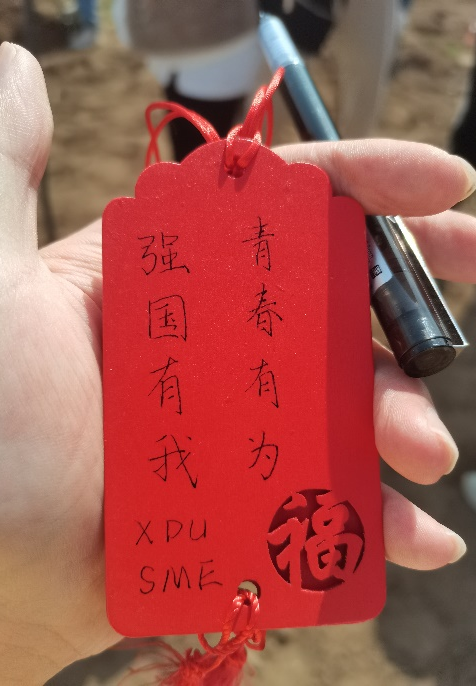 青春有为
强国有我
XDU
SME
福